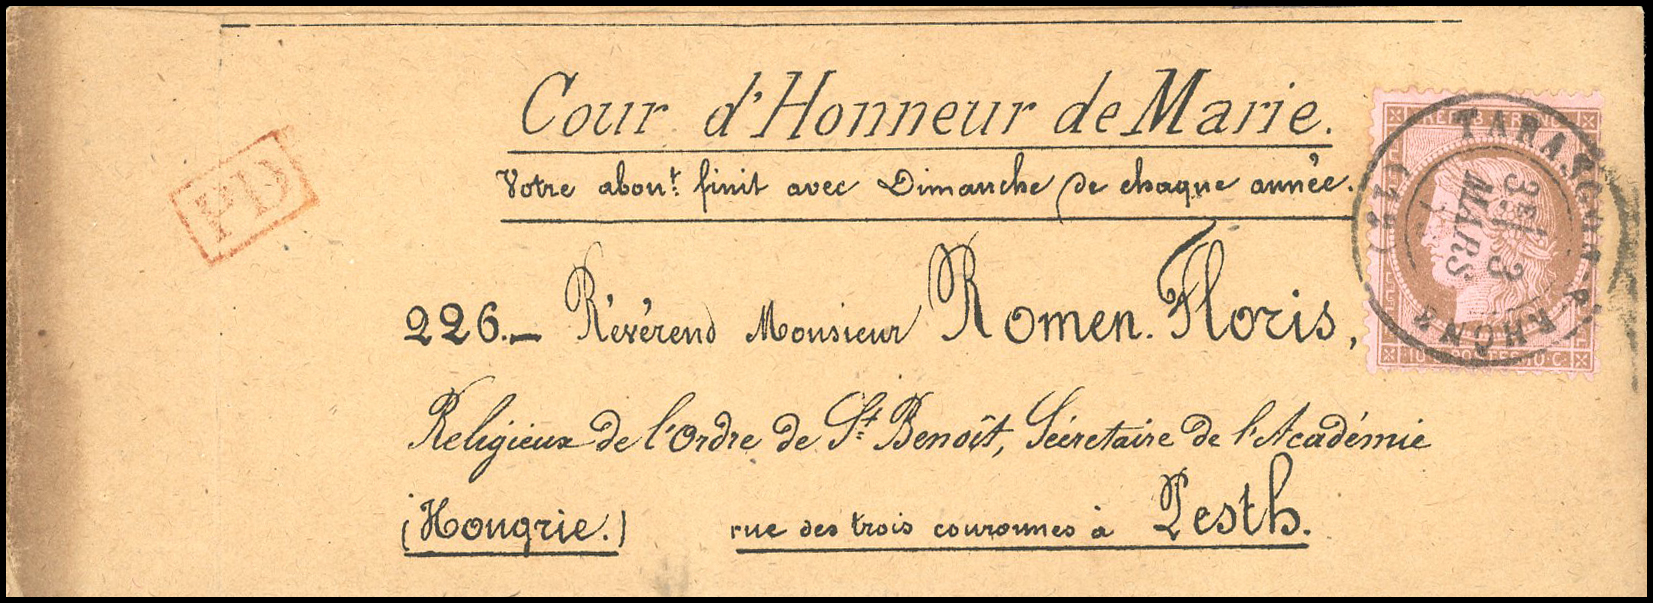 Cour d'Honneur de Marie.
Votre abont. finit avec Dimanche de chaque année.
PD
226.— Révérend Monsieur Romen. Floris,
Religieux de l'Ordre de St. Benoît, Sécretaire de l'Académie
(Hongrie.) rue des trois couronnes à Pesth.
REPUB FRANC
10 POSTES 10 C
TARASCON-S-RHONE
3E/
3
MARS